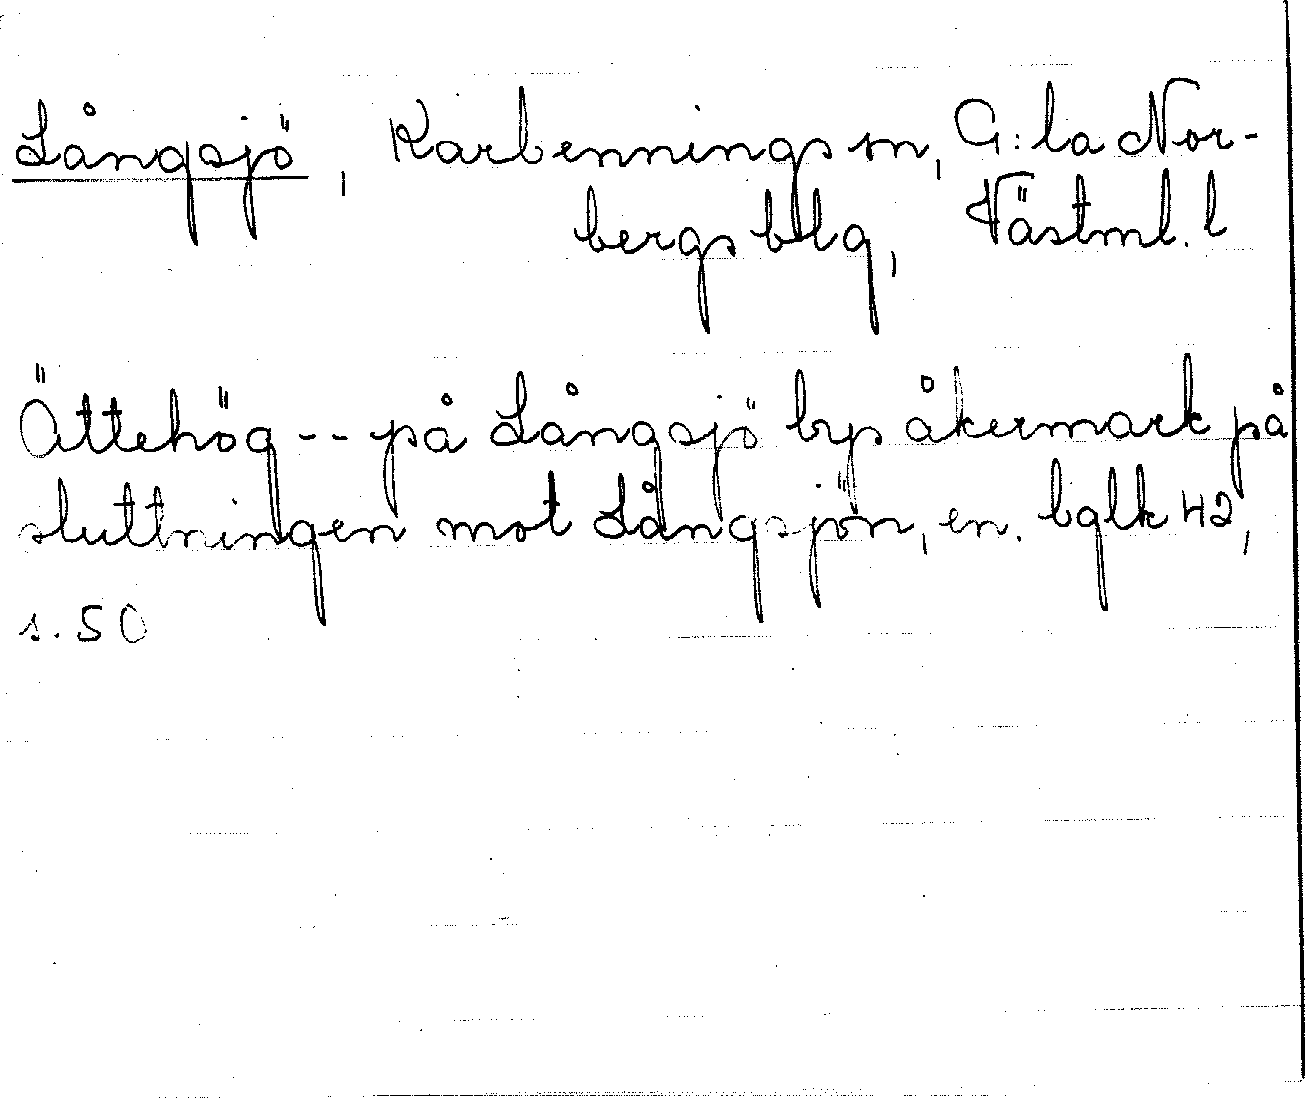 Långsjö, Karbennings sn, G:la Nor-
bergs bllg, Västml. l
Ättehög -- på Långsjö bys åkermark på
sluttningen mot Långsjön, en. bglk 42,
s. 50